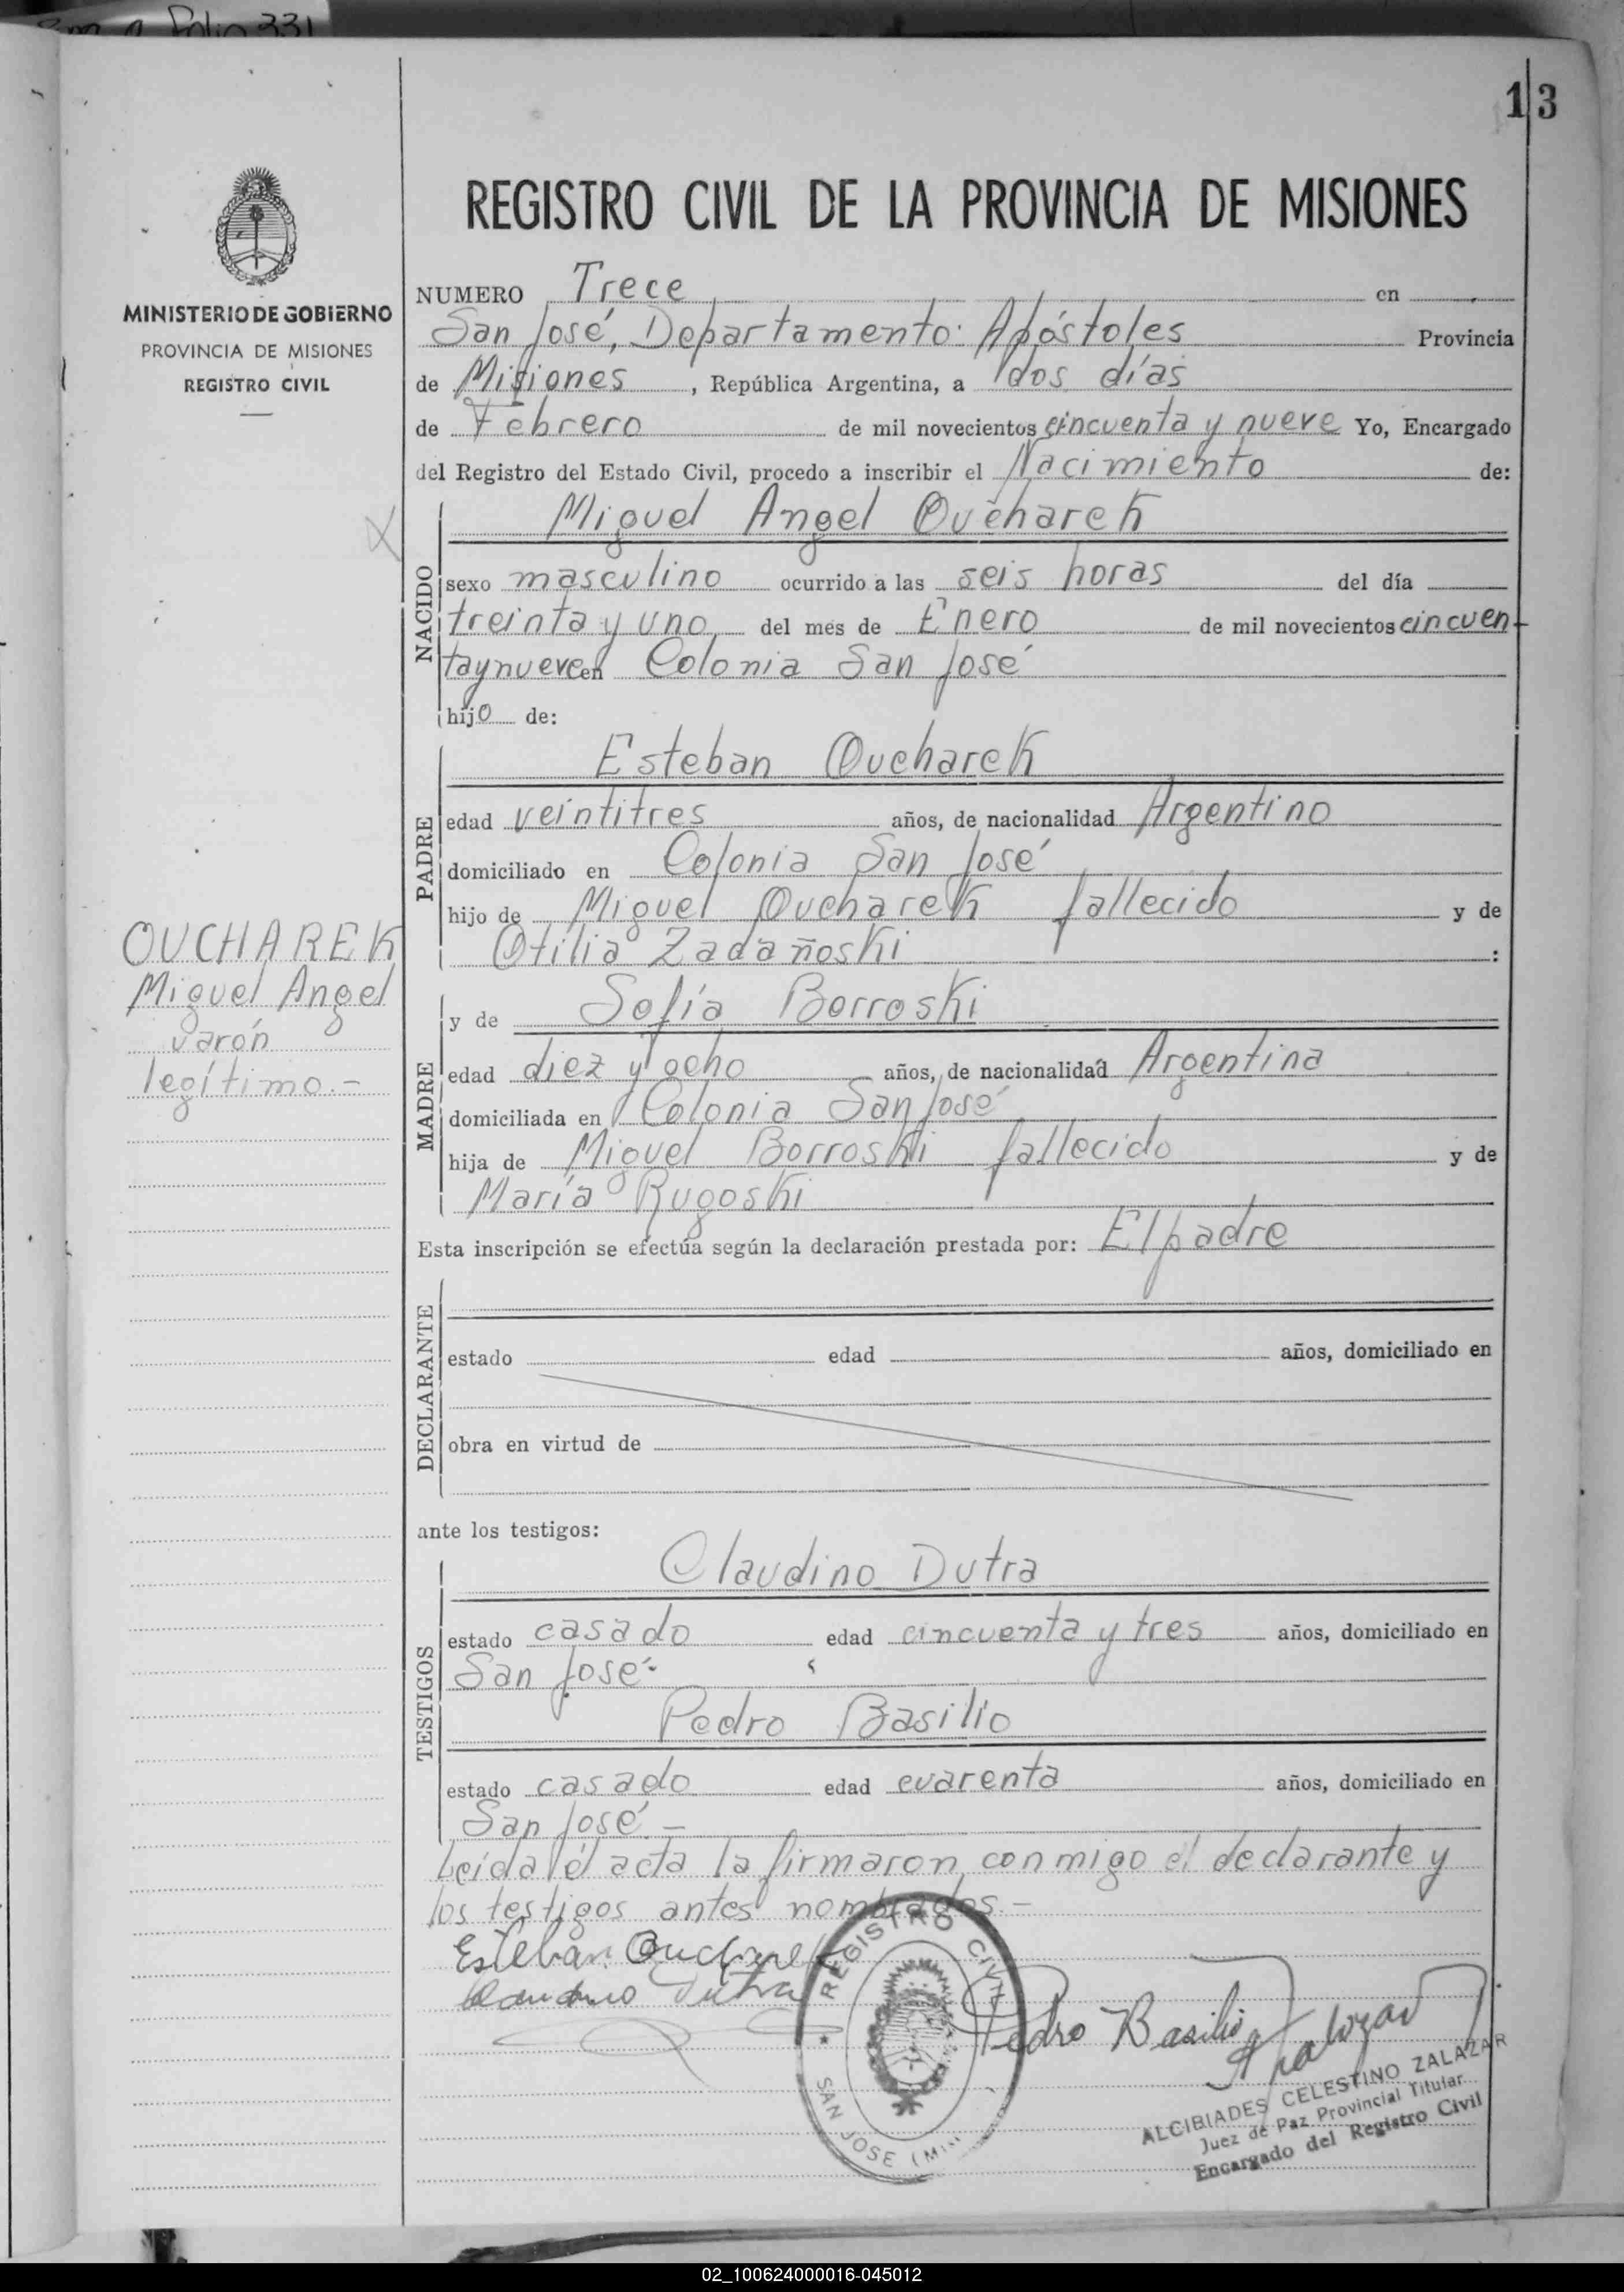 Folio 331
13
REGISTRO CIVIL DE LA PROVINCIA DE MISIONES
MINISTERIO DE GOBIERNO
PROVINCIA DE MISIONES
REGISTRO CIVIL
NUMERO Trece en
San José, Departamento: Apóstoles Provincia
de Misiones, República Argentina, a dos días
de Febrero de mil novecientos cincuenta y nueve Yo, Encargado
del Registro del Estado Civil, procedo a inscribir el Nacimiento de:
NACIDO
Miguel Angel Oucharek
sexo masculino ocurrido a las seis horas del día
treinta y uno, del mes de Enero de mil novecientos cincuen-
ta y nueve en Colonia San José
hijo de:
PADRE
Esteban Oucharek
edad veintitres años, de nacionalidad Argentino
domiciliado en Colonia San José
hijo de Miguel Oucharek fallecido y de
Otilia Zadañoski :
OUCHAREK
Miguel Angel
varón
legítimo.-
MADRE
y de Sofía Borroski
edad diez y ocho años, de nacionalidad Argentina
domiciliada en Colonia San José
hija de Miguel Borroski fallecido y de
María Rugoski
Esta inscripción se efectúa según la declaración prestada por: El padre
DECLARANTE
estado edad años, domiciliado en
obra en virtud de
ante los testigos:
TESTIGOS
Claudino Dutra
estado casado edad cincuenta y tres años, domiciliado en
San José-
Pedro Basilio
estado casado edad cuarenta años, domiciliado en
San José.-
Leída el acta la firmaron conmigo el declarante y
los testigos antes nombrados.-
Esteban Oucharek
Claudino Dutra
Pedro Basilio
REGISTRO CIVIL
SAN JOSE (Mis
ALCIBIADES CELESTINO ZALAZAR
Juez de Paz Provincial Titular
Encargado del Registro Civil
02_100624000016-045012